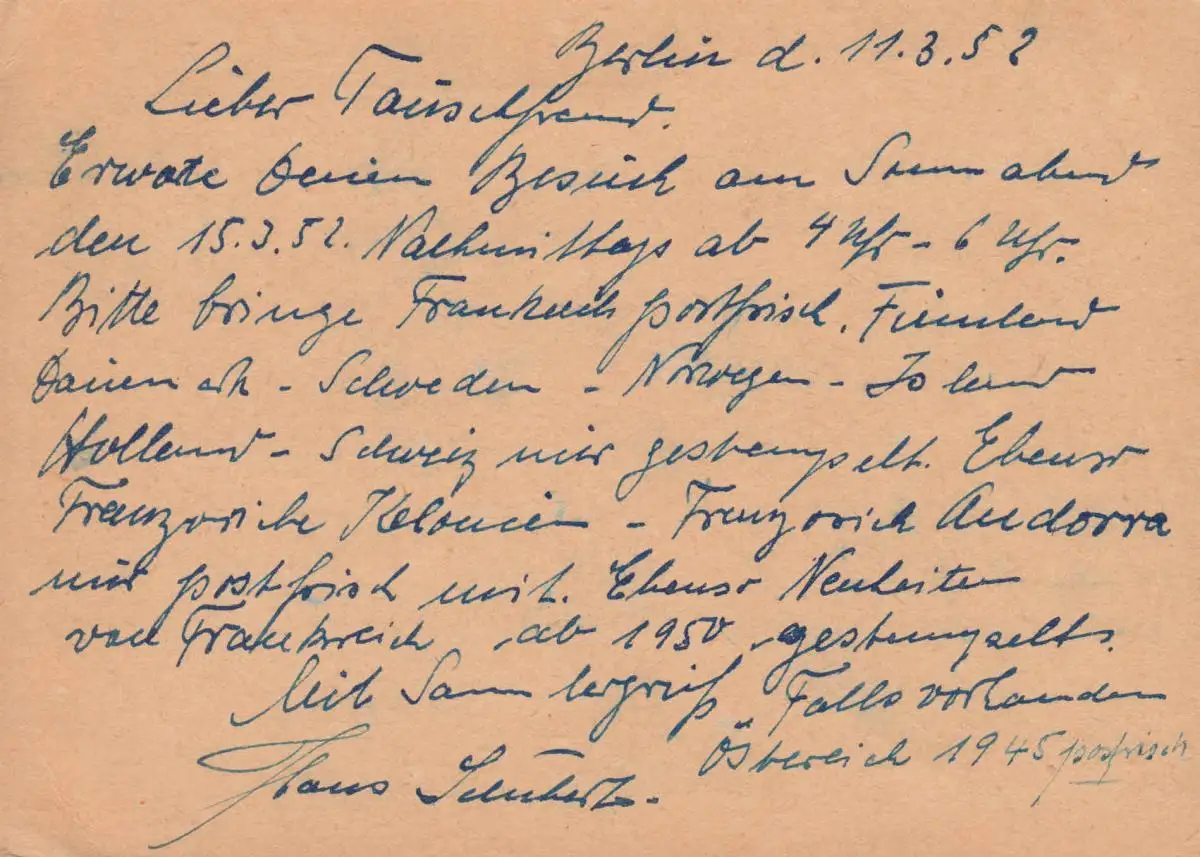 Berlin d. 11.3.52
Lieber Tauschfreund.
Erwate Deinen Besuch am Sonnabend
den 15.3.52. Nachmittags ab 4 Uhr - 6 Uhr.
Bitte bringe Frankreich postfrisch. Finnland
Dänemark - Schweden - Norwegen - Island
Holland - Schweiz nur gestempelt. Ebenso
Französiche Kolonien - Französich Andorra
nur postfrisch mit. Ebenso Neuheiten
von Frankreich ab 1950 gestempelt.
Mit Sammlergruß Falls vorhanden
Östereich 1945 postfrisch
Hans Schubert.